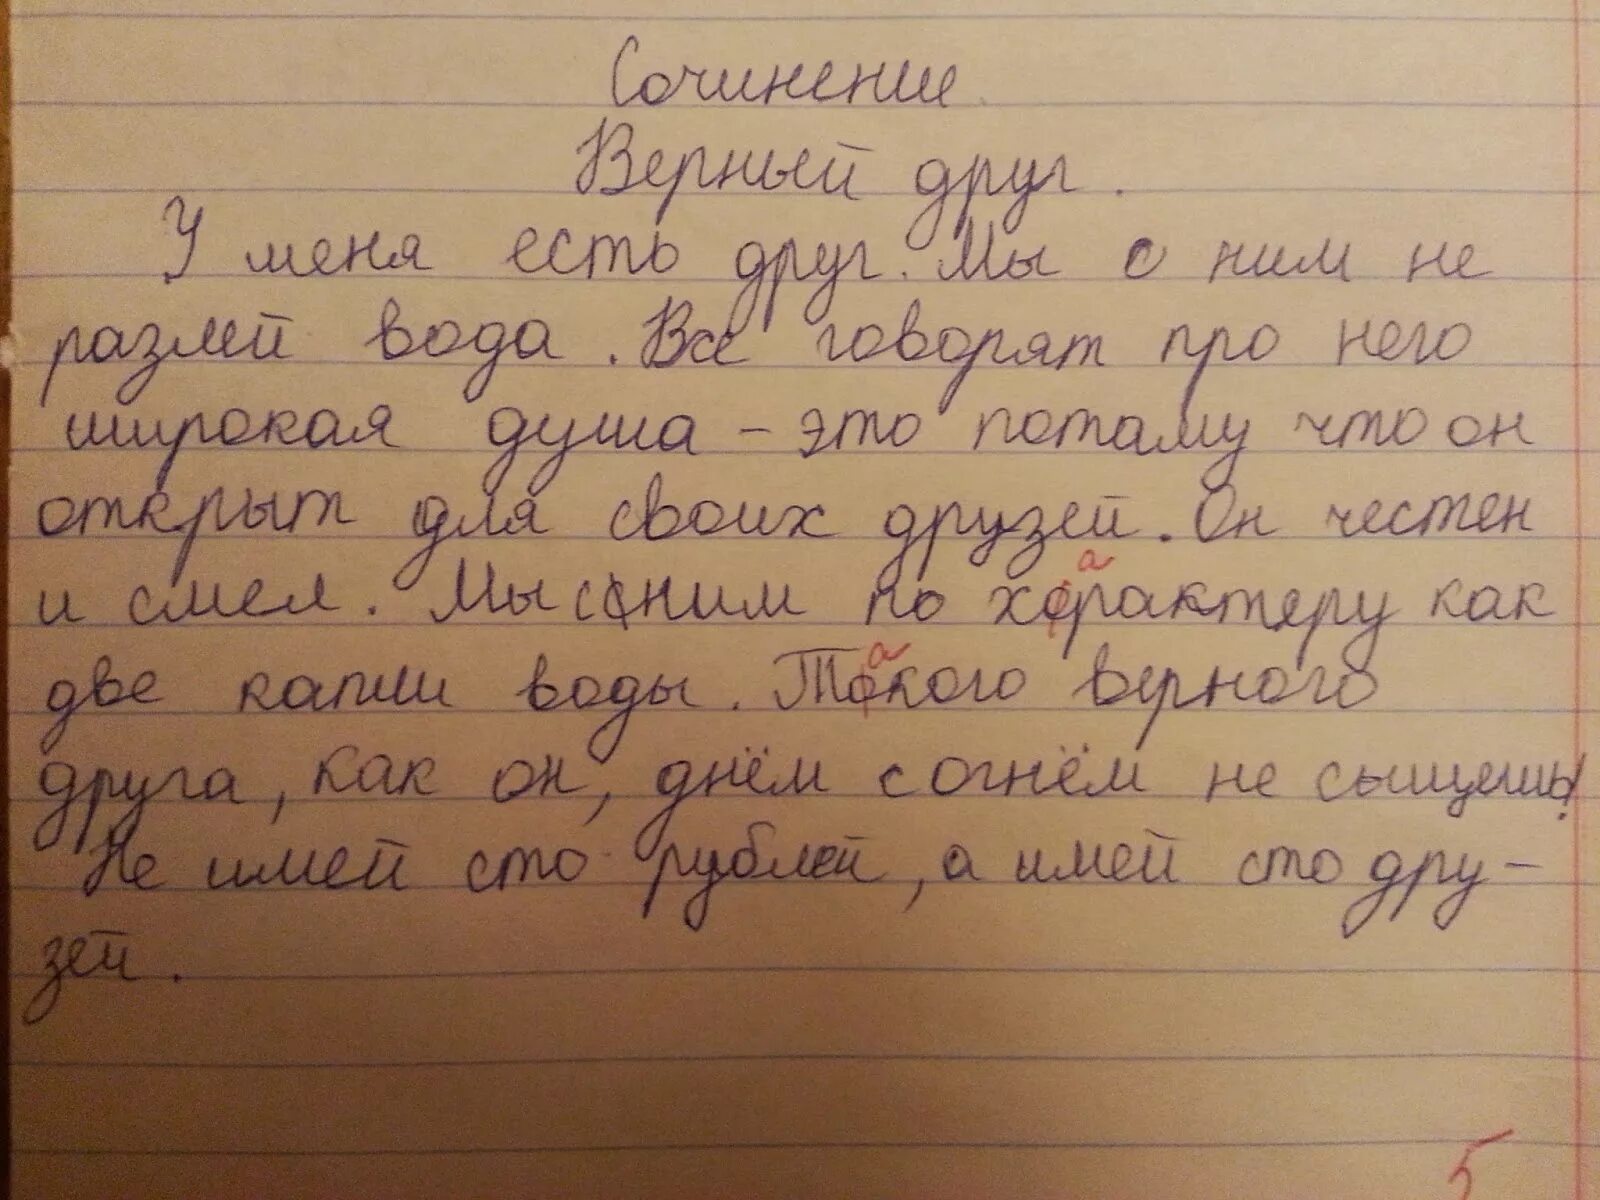 Сочинение
Верный друг.
У меня есть друг. Мы с ним не
разлей вода. Все говорят про него
широкая душа – это потаму что он
открыт для своих друзей. Он честен
и смел. Мы с ним по характеру как
две капли воды. Такого верного
друга, как он, днём с огнём не сыщешь!
Не имей сто рублей, а имей сто дру-
зей.
5